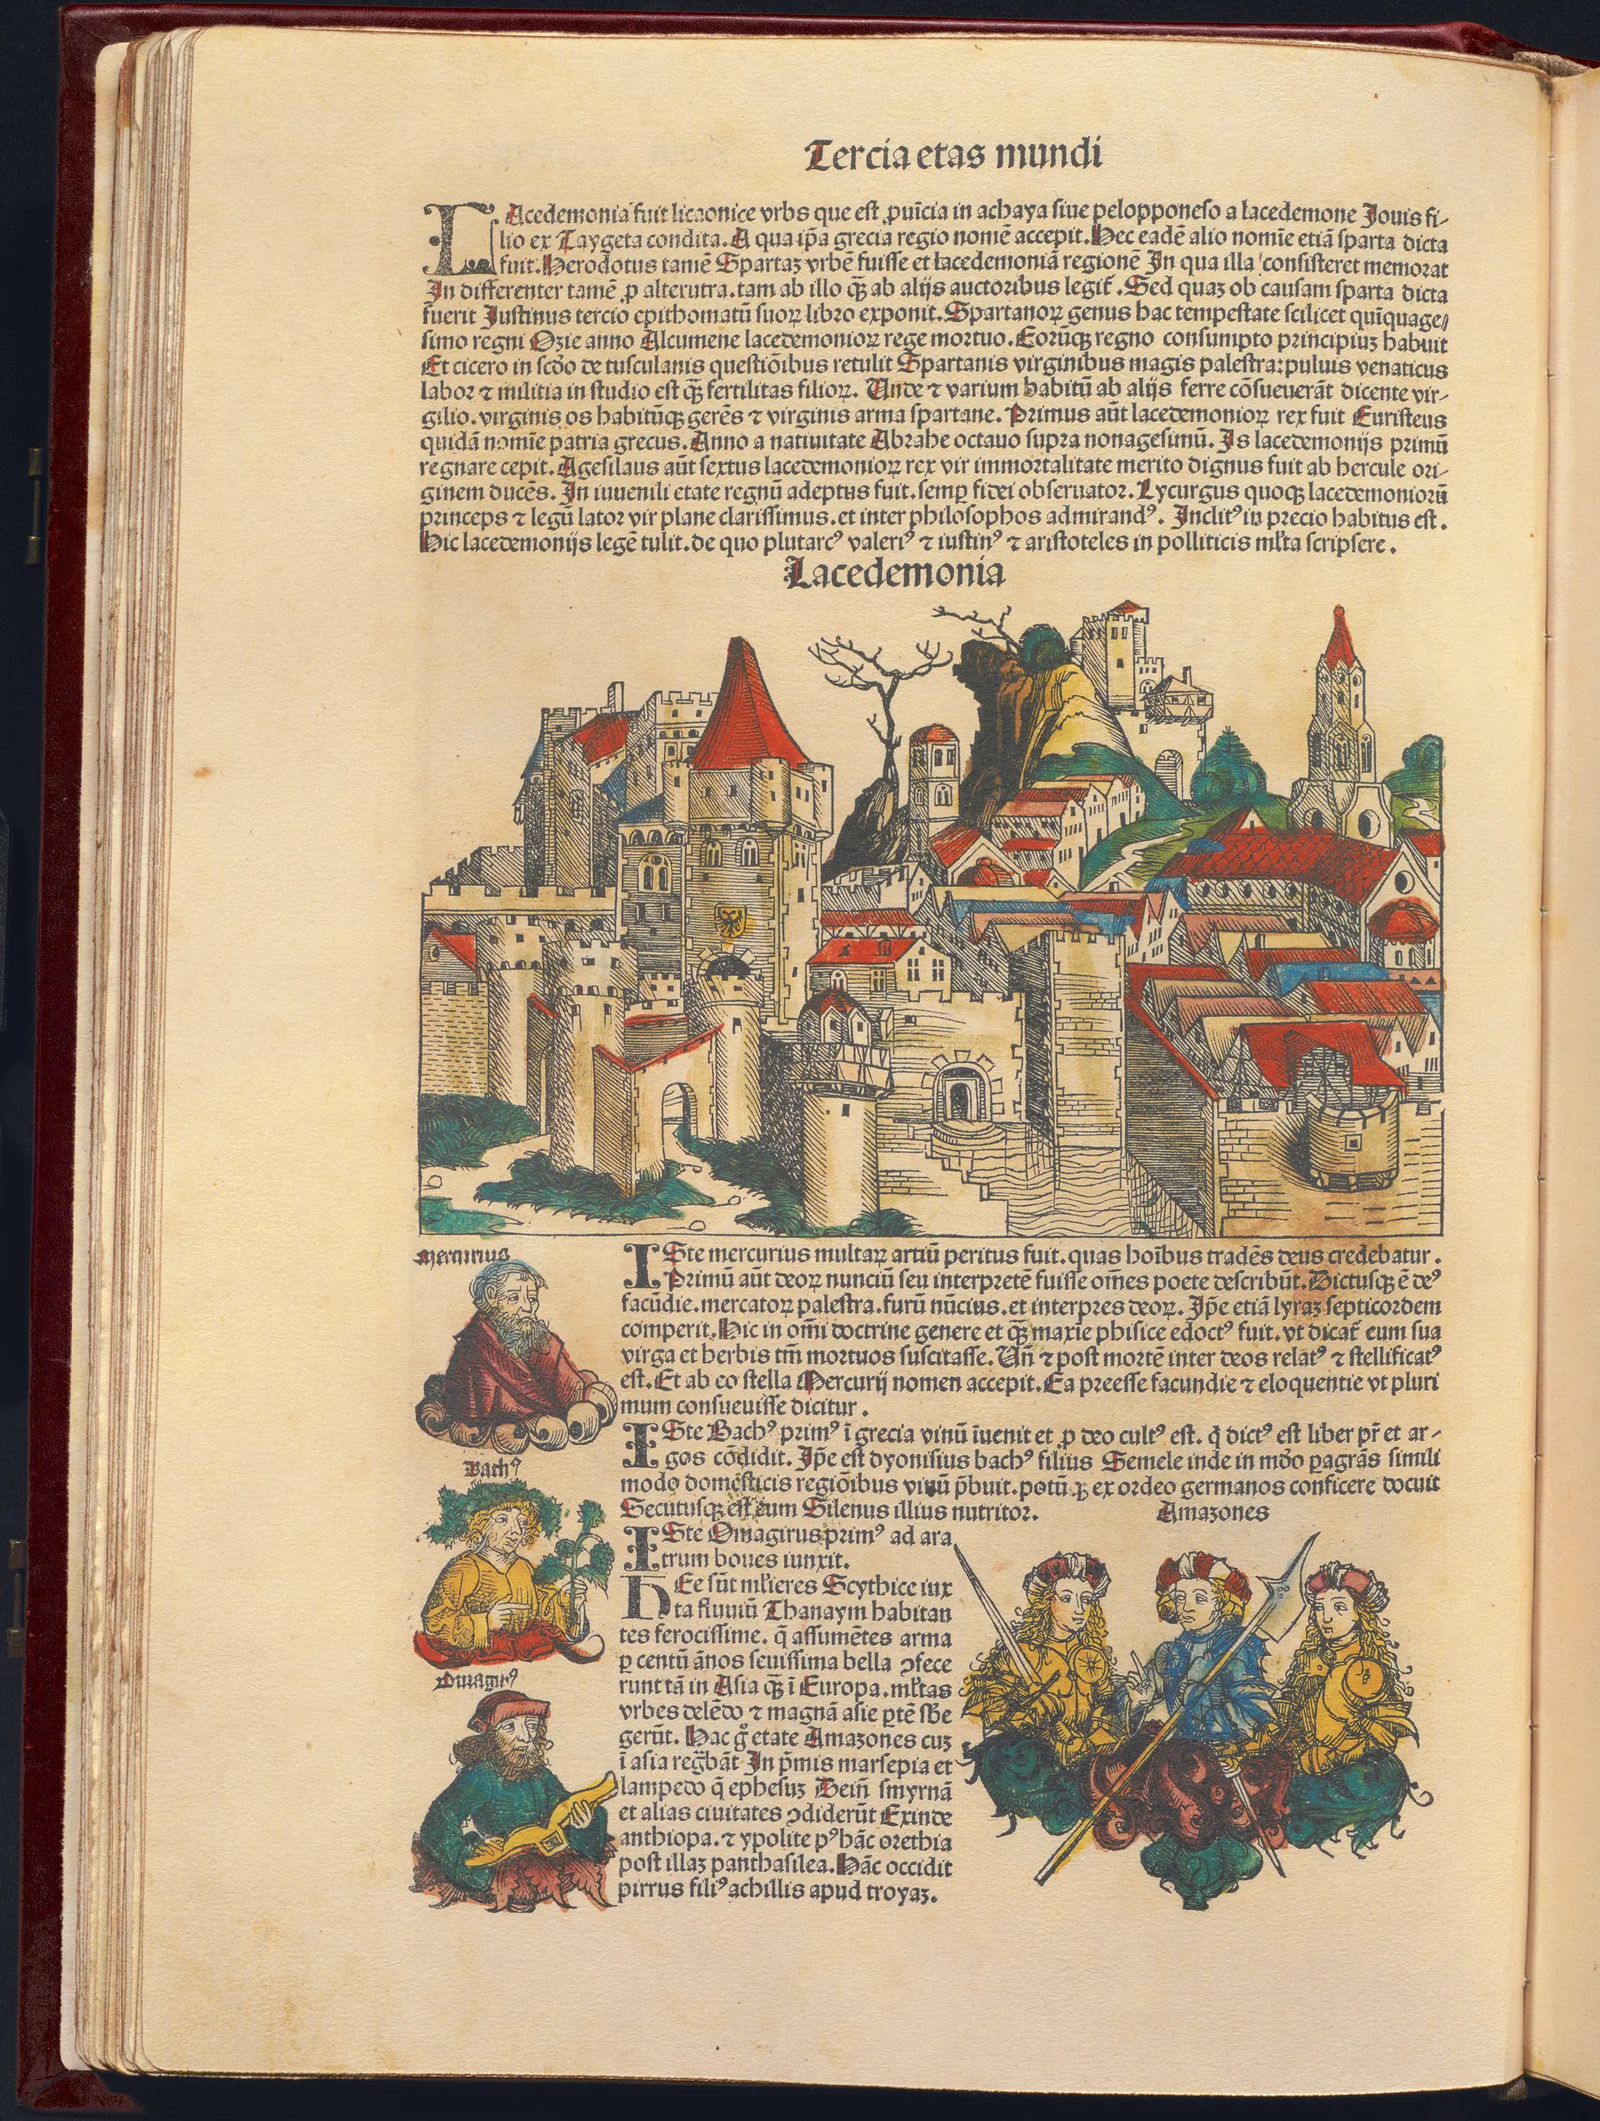 Tercia etas mundi
LAcedemonia fuit licaonice vrbs que est ꝓuīcia in achaya siue pelopponeso a lacedemone Iouis fi-
lio ex Taygeta condita. A qua ip̄a grecia regio nomē accepit. Hec eadē alio nomīe etiā sparta dicta
fuit. Herodotus tamē Spartaꝫ vrbē fuisse et lacedemoniā regionē In qua illa consisteret memorat
In differenter tamē ꝓ alterutra. tam ab illo ꝙ̄ ab alijs auctoribus legit̄. Sed quaꝫ ob causam sparta dicta
fuerit Iustinus tercio epithomatū suoꝝ libro exponit. Spartanoꝝ genus hac tempestate scilicet quīquage/
simo regni Ozie anno Alcumene lacedemonioꝝ rege mortuo. Eorūqꝫ regno consumpto principiuꝫ habuit
Et cicero in scd̄o de tusculanis questiōibus retulit Spartanis virginibus magis palestra: puluis venaticus
labor ⁊ militia in studio est ꝙ̄ fertilitas filioꝝ. Unde ⁊ varium habitū ab alijs ferre cōsueuerāt dicente vir-
gilio. virginis os habitūqꝫ gerēs ⁊ virginis arma spartane. Primus aūt lacedemonioꝝ rex fuit Euristeus
quidā nomīe patria grecus. Anno a natiuitate Abrahe octauo supra nonagesimū. Is lacedemonijs primū
regnare cepit. Agesilaus aūt sextus lacedemonioꝝ rex vir immortalitate merito dignus fuit ab hercule ori-
ginem ducēs. In iuuenili etate regnū adeptus fuit. semꝑ fidei obseruator. Lycurgus quoqꝫ lacedemoniorū
princeps ⁊ legū lator vir plane clarissimus. et inter philosophos admirandꝰ. Inclitꝰ in precio habitus est.
Hic lacedemonijs legē tulit. de quo plutarcꝰ valeriꝰ ⁊ iustinꝰ ⁊ aristoteles in polliticis ml̄ta scripsere.
Lacedemonia
Mercurius
ISte mercurius multaꝝ artiū peritus fuit. quas hoībus tradēs deus credebatur.
Primū aūt deoꝝ nunciū seu interpretē fuisse om̄es poete describūt. Dictusqꝫ ē deꝰ
facūdie. mercatoꝝ palestra. furū nūcius. et interpres deoꝝ. Ip̄e etiā lyraꝫ septicordem
comperit. Hic in om̄i doctrine genere et ꝙ̄ maxīe phisice edoctꝰ fuit. vt dicat̄ eum sua
virga et herbis tm̄ mortuos suscitasse. Un̄ ⁊ post mortē inter deos relatꝰ ⁊ stellificatꝰ
est. Et ab eo stella Mercurij nomen accepit. Ea preesse facundie ⁊ eloquentie vt pluri
mum consueuisse dicitur.
Bachꝰ
ISte Bachꝰ primꝰ ī grecia vinū īuenit et ꝓ deo cultꝰ est. q̄ dictꝰ est liber pr̄ et ar-
gos cōdidit. Ip̄e est dyonisius bachꝰ filius Semele inde in mōo ꝑagrās simili
modo domesticis regiōibus vinū p̄buit. potū qꝫ ex ordeo germanos conficere docuit
Secutusqꝫ est eum Silenus illius nutritor.
Omagirꝰ
ISte Omagirus primꝰ ad ara
trum boues iunxit.
Amazones
HEe sūt ml̄ieres Scythice iux
ta fluuiū Thanaym habitan
tes ferocissime. q̄ assumētes arma
ꝑ centū ānos seuissima bella ↄfece
runt tā in Asia ꝙ̄ ī Europa. ml̄tas
vrbes delēdo ⁊ magnā asie ꝑtē sb̄e
gerūt. Hac gͦ etate Amazones cuꝫ
ī asia regn̄bāt In p̄mis marsepia et
lampedo q̄ ephesuꝫ Dein̄ smyrnā
et alias ciuitates ↄdiderūt Exinde
anthiopa. ⁊ ypolite pꝰ hāc orethia
post illaꝫ panthasilea. Hāc occidit
pirrus filiꝰ achillis apud troyaꝫ.